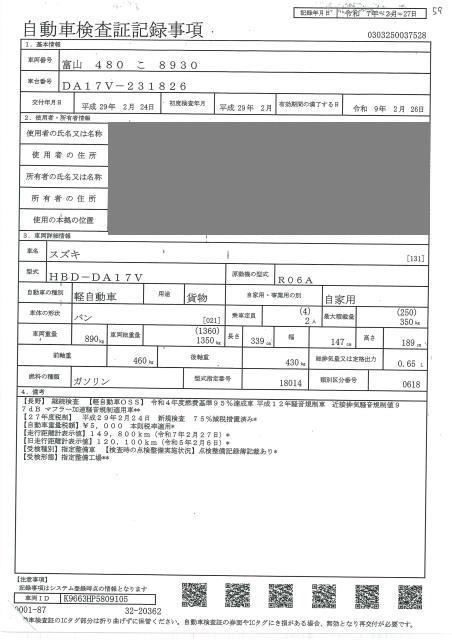 記録年月日 令和 7年 2月 27日
59
自動車検査証記録事項
0303250037528
1．基本情報
車両番号 富山 480 こ 8930
車台番号 DA17V-231826
交付年月日 平成 29年 2月 24日 初度検査年月 平成 29年 2月 有効期間の満了する日 令和 9年 2月 26日
2．使用者・所有者情報
使用者の氏名又は名称
使用者の住所
所有者の氏名又は名称
所有者の住所
使用の本拠の位置
3．車両詳細情報
車名 スズキ [131]
型式 HBD-DA17V 原動機の型式 R06A
自動車の種別 軽自動車 用途 貨物 自家用・事業用の別 自家用
車体の形状 バン [021] 乗車定員 (4) 2人 最大積載量 (250) 350kg
車両重量 890kg 車両総重量 (1360) 1350kg 長さ 339cm 幅 147cm 高さ 189cm
前軸重 460kg 後軸重 430kg 総排気量又は定格出力 0.65L
燃料の種類 ガソリン 型式指定番号 18014 類別区分番号 0618
4．備考
【長野】 継続検査 【軽自動車OSS】 令和4年度燃費基準95％達成車 平成12年騒音規制車 近接排気騒音規制値9
7dB マフラー加速騒音規制適用車**
【27年度税制】 平成29年2月24日 新規検査 75％減税措置済み*
【自動車重量税額】 ¥5,000 本則税率適用*
【走行距離計表示値】 149,800km（令和7年2月27日）*
【旧走行距離計表示値】 120,100km（令和5年2月6日）*
【受検種別】指定整備車 【検査時の点検整備実施状況】点検整備記録簿記載あり*
【受検形態】指定整備工場**
【注意事項】
記録事項はシステム登録時点の情報となります
車両ID K9663HP5809105
0001-87 32-20362
動車検査証のICタグ部分は折り曲げずに保管ください。自動車検査証の券面やICタグにき損がある場合、無効となり再交付が必要です。